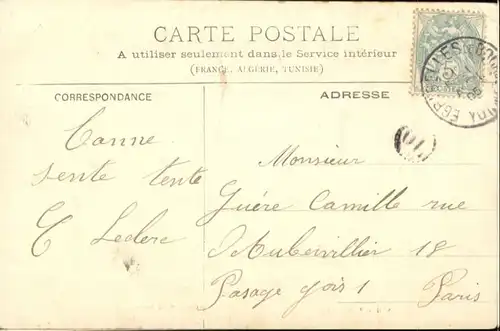 CARTE POSTALE
A utiliser seulement dans le Service intérieur
(FRANCE, ALGÉRIE, TUNISIE)
CORRESPONDANCE
ADRESSE
Tanne
sente tente
E Leclerc
Monsieur
Guére Camille rue
d'Aubervillier 18
Pasage gois 1 Paris